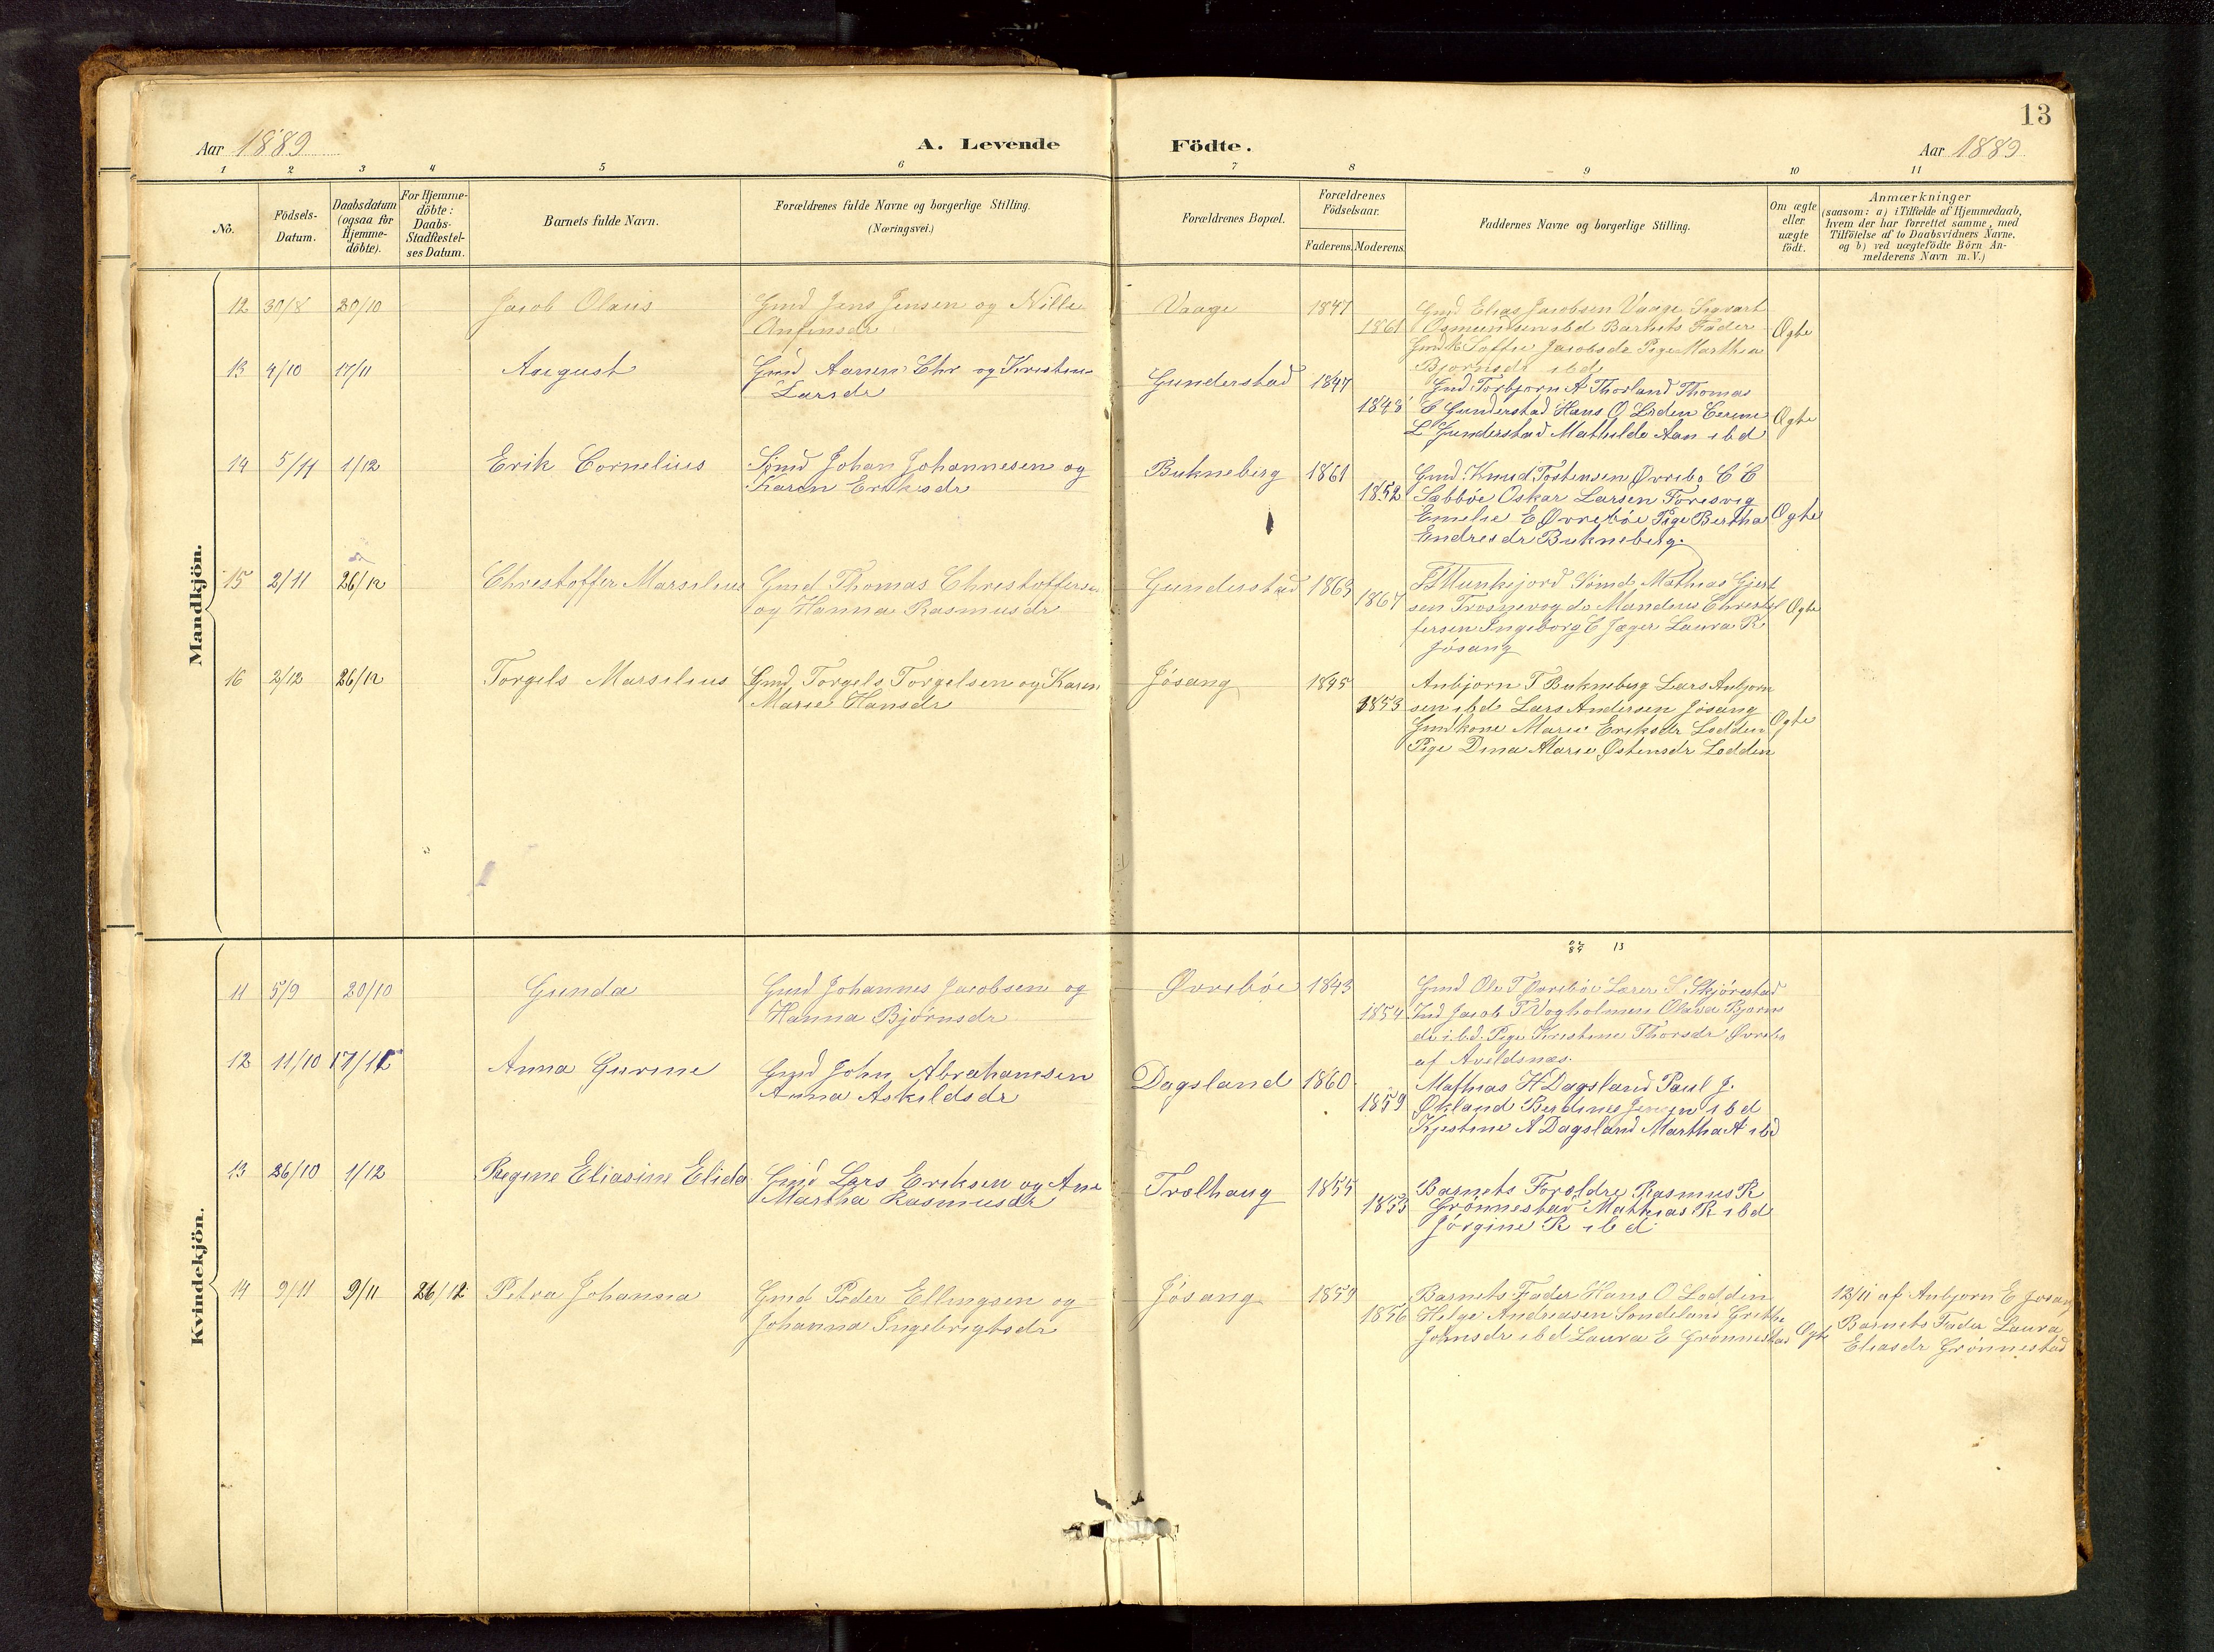 13
Aar 1889
A. Levende Födte.
Aar 1889
1 2 3 4 5 6 7 8 9 10 11
No.
Födsels-Datum.
Daabsdatum (ogsaa for Hjemme-döbte).
For Hjemme-döbte: Daabs-Stadfæstel-ses Datum.
Barnets fulde Navn.
Forældrenes fulde Navne og borgerlige Stilling.
(Næringsvei.)
Forældrenes Bopæl.
Forældrenes Födselsaar.
Faderens. Moderens.
Faddernes Navne og borgerlige Stilling.
Om ægte eller uægte födt.
Anmærkninger
(saasom: a) i Tilfælde af Hjemmedaab,
hvem der har forrettet samme, med
Tilföielse af to Daabsvidners Navne,
og b) ved uægtefödte Börn An-
melderens Navn m. V.)
Mandkjön.
12 30/8 20/10 Jacob Olaus Gmd Jens Jensen og Nille
Anfinsdr
Vaage 1847
1861
Gmd Elias Jacobsen Vaage Sigvart
Osmundsen ibd Barnets Fader
Gmdk Softie Jacobsdr Pige Marthea
Bjørnsdr ibd
Ægte
13 4/10 17/11 August Gmd Aanen Chr og Kristine
Larsdr
Gunderstad 1847
1848
Gmd Torbjørn A Thorland Thomas
C Gunderstad Hans O Loden
L Gunderstad Mathilde Aan ibd
Ægte
14 5/11 1/12 Erik Cornelius Smd Johan Johannesen og
Karen Eriksdr
Bukneberg 1861
1852
Gmd Knud Tostensen Øvrebø C C
Sæbbøe Oskar Larsen Foresvig
Emelie E Øvrebøe Pige Bertha
Endresdr Bukneberg.
Ægte
15 2/11 26/12 Chrestoffer Marselius Gmd Thomas Chrestoffersen
og Hanna Rasmusdr
Gunderstad 1863
1867
Munkejord Sømd Mathias Gjert
sen Trosnevog do Mandius Christof
fersen Ingeborg C Jæger Laura R
Jösang
Ægte
16 2/12 26/12 Torgels Marselius Gmd Torgels Torgelsen og Karen
Marie Hansdr
Jösang 1845
1853
Anbjørn T Bukneberg Lars Anbjørn
sen ibd Lars Andersen Jösang
Gmdkone Marie Eriksdr Lodden
Pige Dina Marie Østensdr Lodden
Ægte
13
Kvindekjön.
11 5/9 20/10 Gunda Gmd Johannes Jacobsen og
Hanna Bjørnsdr
Øvrebøe 1843
1854
Gmd Ole T Øvrebøe Lærer S Skjørestad
Ind Jacob T Vogholmen Olava Bjørns
dr ibd Pige Kirstine Thorsdr Øvrebø
af Aveldsnæs.
12 11/10 17/11 Anna Gurine Gmd John Abrahamsen
Anna Askildsdr
Dagsland 1860
1859
Mathias H Dagsland Paul J.
Økland Berdines Jensen ibd
Kjestine A Dagsland Martha A ibd
13 26/10 1/12 Regine Eliasine Elida Gmd Lars Eriksen og Ane
Martha Rasmusdr
Trælhaug 1855
1853
Barnets Forældre Rasmus R
Grønnestad Mathias R ibd
Jörgine R ibd
14 9/11 9/11 26/12 Petra Johanna Gmd Peder Ellingsen og
Johanna Ingebrigtsdr
Jösang 1859
1856
Barnets Fader Hans O Lodden
Helge Andreasen Sondeland Grethe
Johnsdr ibd Laura E Grønnestad
Ægte
12/11 af Anbjørn E Josang
Barnets Fader Laura
Eliasdr Grönnestad